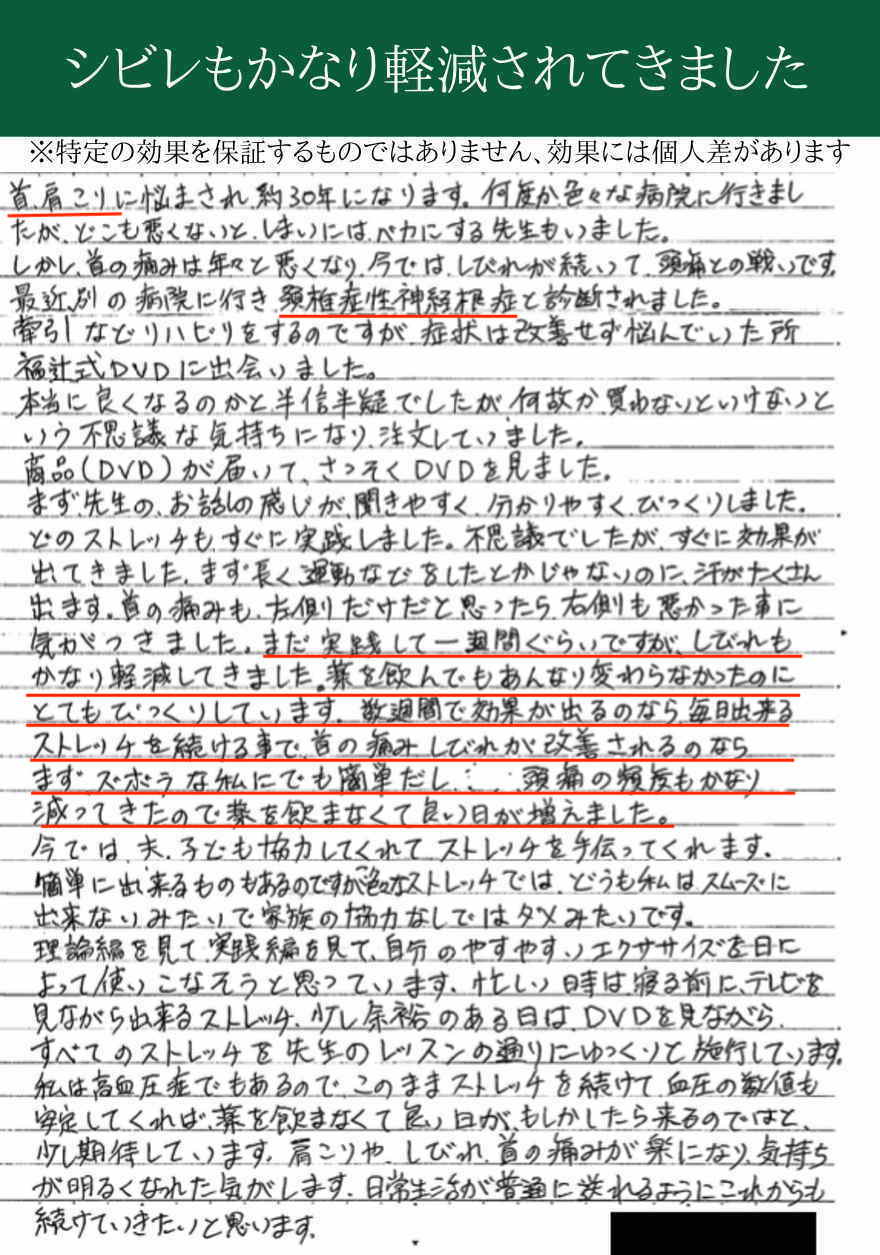 シビレもかなり軽減されてきました
※特定の効果を保証するものではありません、効果には個人差があります
首、肩こりに悩まされ、約30年になります。何度か色々な病院に行きまし
たが、どこも悪くないと、しまいには、バカにする先生もいました。
しかし、首の痛みは年々と悪くなり、今では、しびれが続いて、頭痛との戦いです。
最近、別の病院に行き、頚椎症性神経根症と診断されました。
牽引などリハビリをするのですが、症状は改善せず悩んでいた所
福辻式DVDに出会いました。
本当に良くなるのかと半信半疑でしたが、何故か買わないといけないと
いう不思議な気持ちになり、注文していました。
商品(DVD)が届いて、さっそくDVDを見ました。
まず、先生の、お話しの感じが、聞きやすく、分かりやすく、びっくりしました。
どのストレッチも、すぐに実践しました。不思議でしたが、すぐに効果が
出てきました。まず長く運動などをしたとかじゃないのに、汗がたくさん
出ます。首の痛みも、左側だけだと思ったら、右側も悪かった事に
気がつきました。まだ実践して一週間ぐらいですが、しびれも
かなり軽減してきました。薬を飲んでもあんなり変わらなかったのに
とてもびっくりしています。数週間で効果が出るのなら、毎日出来る
ストレッチを続ける事で、首の痛みしびれが改善されるのなら
まず、ズボラな私にでも簡単だし…、頭痛の頻度もかなり
減ってきたので薬を飲まなくて良い日が増えました。
今では、夫、子ども協力してくれてストレッチを手伝ってくれます。
簡単に出来るものもあるのですが色々なストレッチでは、どうも私はスムーズに
出来ないみたいで家族の協力なしではダメみたいです。
理論編を見て、実践編を見て、自分のやすやすいエクササイズを日に
よって使いこなそうと思っています。忙しい時は、寝る前に、テレビを
見ながら出来るストレッチ、少し余裕のある日は、DVDを見ながら、
すべてのストレッチを先生のレッスンの通りにゆっくりと施行しています。
私は高血圧症でもあるので、このままストレッチを続けて、血圧の数値も
安定してくれば、薬を飲まなくて良い日が、もしかしたら来るのではと、
少し期待しています。肩こりや、しびれ、首の痛みが楽になり、気持ち
が明るくなれた気がします。日常生活が普通に送れるようにこれからも
続けていきたいと思います。